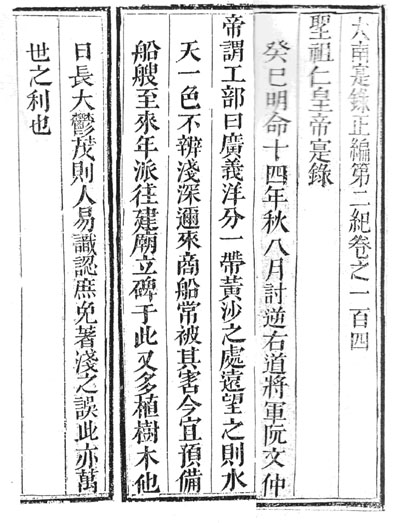 大南寔錄正編第二紀卷之一百四
聖祖仁皇帝寔錄
癸巳明命十四年秋八月討逆右道將軍阮文仲
帝謂工部曰廣義洋分一帶黃沙之處遠望之則水
天一色不辨淺深邇來商船常被其害今宜預備
船艘至來年派往建廟立碑于此又多植樹木他
日長大鬱茂則人易識認庶免著淺之誤此亦萬
世之利也